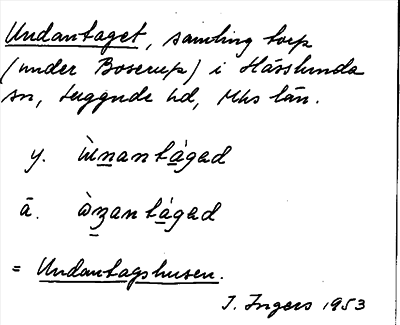 Undantaget, samling torp
(under Boserup) i Hässlunda
sn, Luggude hd, Mhs län.
y. ùnantágad
ä. òʒantágad
= Undantagshusen.
I. Ingers 1953